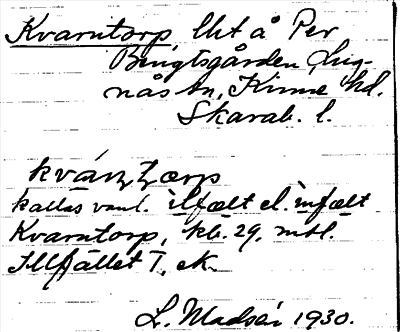 Kvarntorp, lht å Per
Bengtsgården, Lug-
nås sn, Kinne hd.
Skarab. l.
kallas vanl. ilfælt el. infælt
Kvarntorp, kb. 29, mtl.
Illfjället T, ek.
L. Madsén 1930.